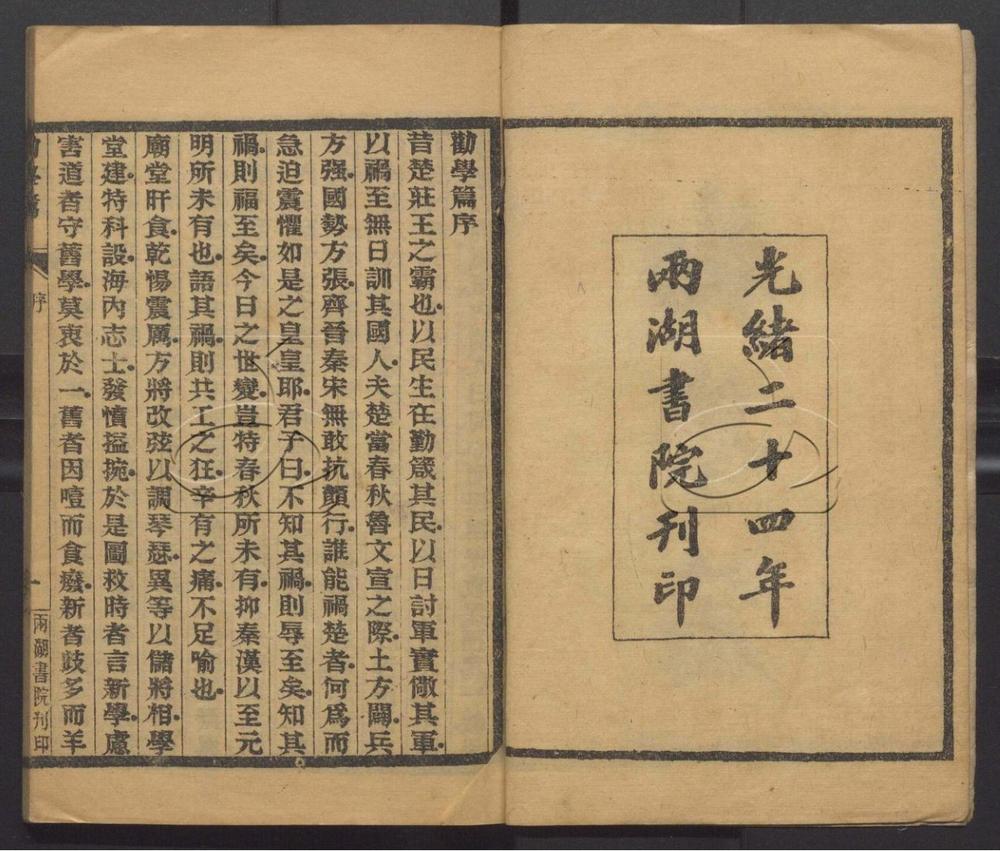 光緒二十四年
兩湖書院刊印
勸學篇序
昔楚莊王之霸也以民生在勤箴其民以日討軍實儆其軍
以禍至無日訓其國人夫楚當春秋魯文宣之際土方闢兵
方强國勢方張齊晉秦宋無敢抗顏行誰能禍楚者何爲而
急迫震懼如是之皇皇耶君子曰不知其禍則辱至矣知其
禍則福至矣今日之世變豈特春秋所未有抑秦漢以至元
明所未有也語其禍則共工之狂辛有之痛不足喻也
廟堂旰食乾惕震厲方將改弦以調琴瑟異等以儲將相學
堂建特科設海內志士發憤搤捥於是圖救時者言新學慮
害道者守舊學莫衷於一舊者因噎而食廢新者歧多而羊
序
一
兩湖書院刊印